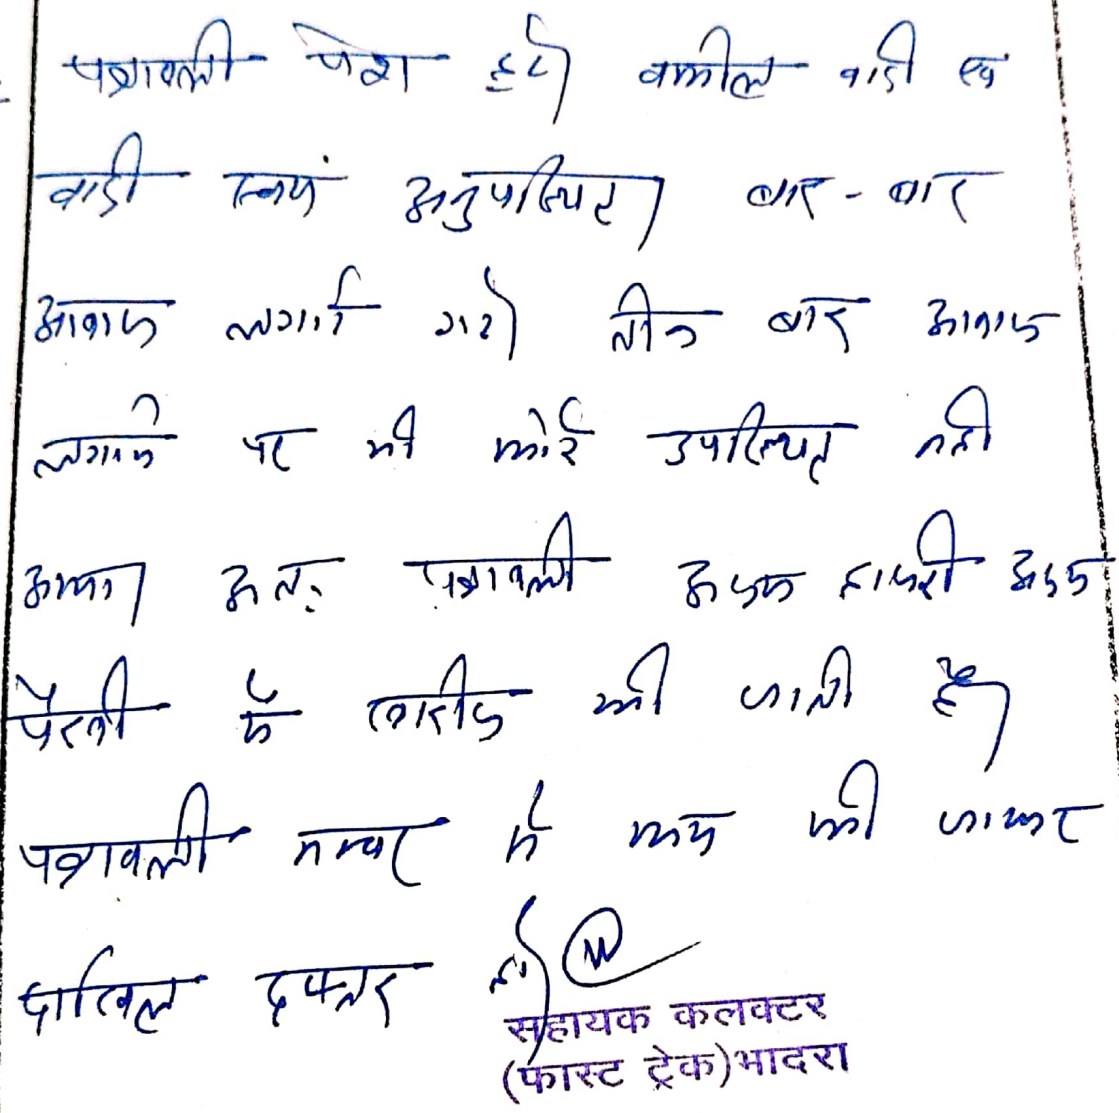 पत्रावली पेश हुई। वकील वादी एवं
वादी स्वयं अनुपस्थित। बार - बार
आवाज लगाई गई। तीन बार आवाज
लगाने पर भी कोई उपस्थित नही
आया। अतः पत्रावली अदम हाजरी अदम
पैरवी में खारीज की जाती है।
पत्रावली नम्बर में कम की जाकर
दाखिल दफ्तर हो।
सहायक कलक्टर
(फास्ट ट्रेक)भादरा